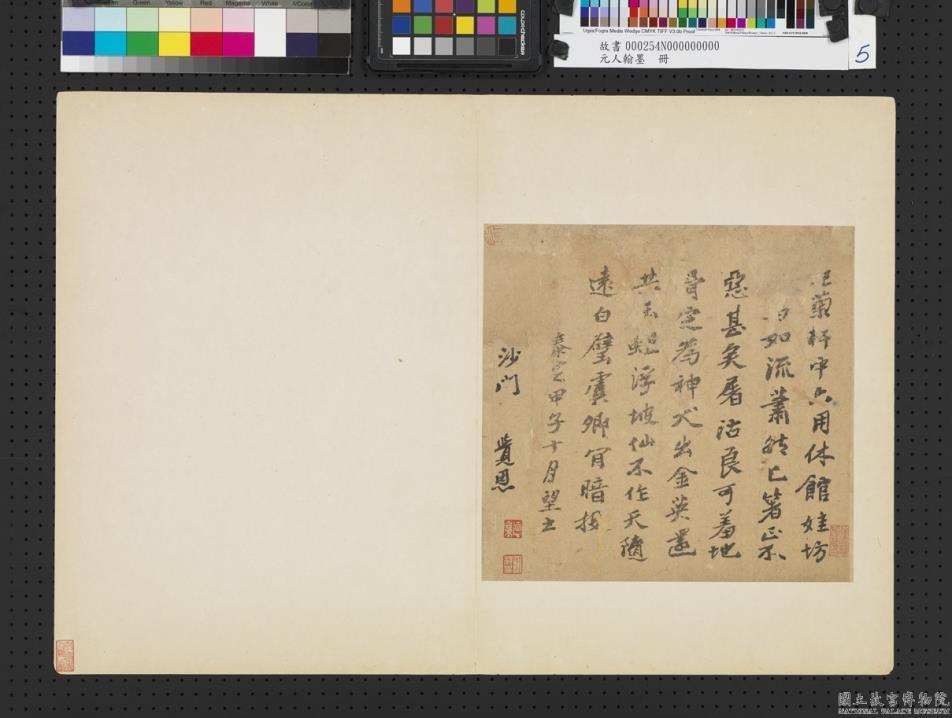 故書 000254N000000000
元人翰墨 冊
5
菊軒中六用休館娃坊
如流蕭然已箸正不
惡甚矣屠沽良可羞地
骨定為神犬出金英還
共玉蛆浮坡仙不作天隨
遠白璧虞卿肎暗投
泰定甲子十月望書
沙門
覺恩
國立故宮博物院
NATIONAL PALACE MUSEUM